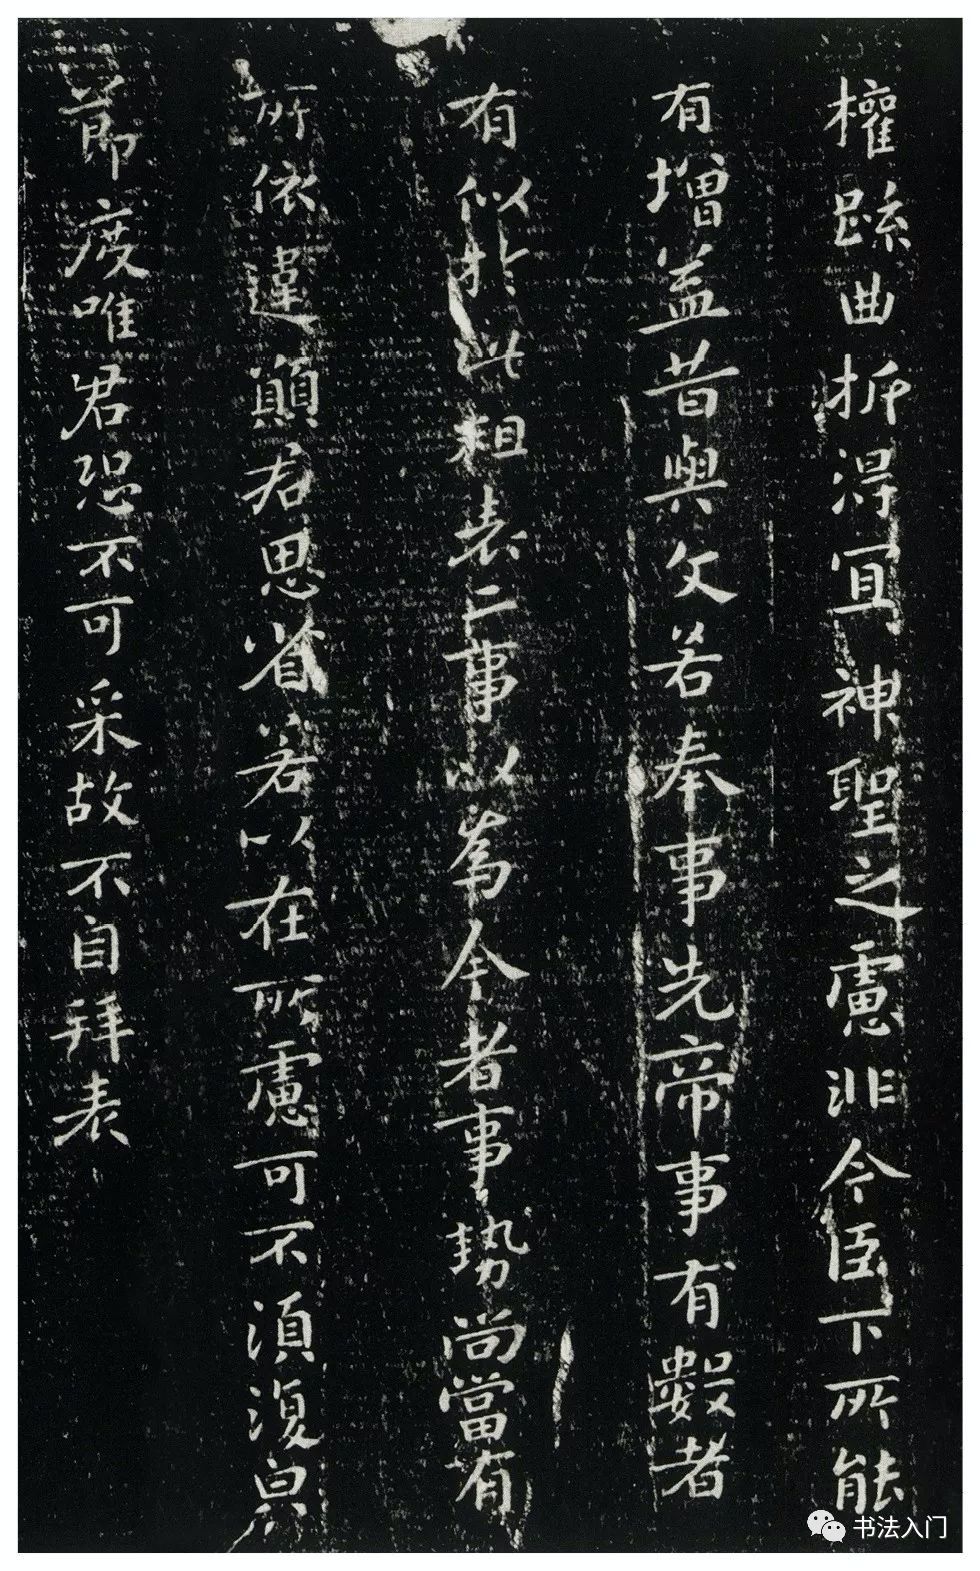 權疏曲折得宜神聖之慮非今臣下所能
有增益昔與文若奉事先帝事有數者
有似於此粗表二事以為今者事勢尚當有
所依違願君思省若以在所慮可不須復貞
節度唯君恐不可采故不自拜表
书法入门